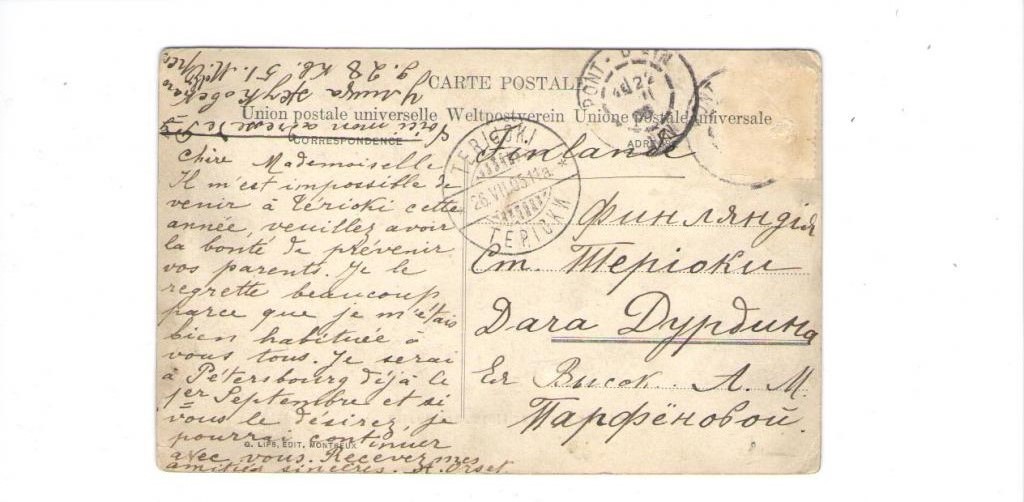 CARTE POSTALE
Union postale universelle Weltpostverein Unione postale universale
CORRESPONDENCE
ADRESSE
Voici mon adresse de
Улица
д. 28 кв. 51.
Chère Mademoiselle
Il m'est impossible de
venir à Térioki cette
année, veuillez avoir
la bonté de prévenir
vos parents. Je le
regrette beaucoup
parce que je m'étais
bien habituée à
vous tous. Je serai
à Pétersbourg déjà le
1er Septembre et si
vous le désirez, je
pourrai continuer
avec vous. Recevez mes
amitiés sincères. A. Orset.
G. LIPS, EDIT. MONTREUX
PONT-D'AIN
TERIJOKI
26.VII.05.11a.
ТЕРІОКИ
Finlande
Финляндія
Ст. Теріоки
Дача Дурдина
Ея Высок. А. М.
Парфёновой.